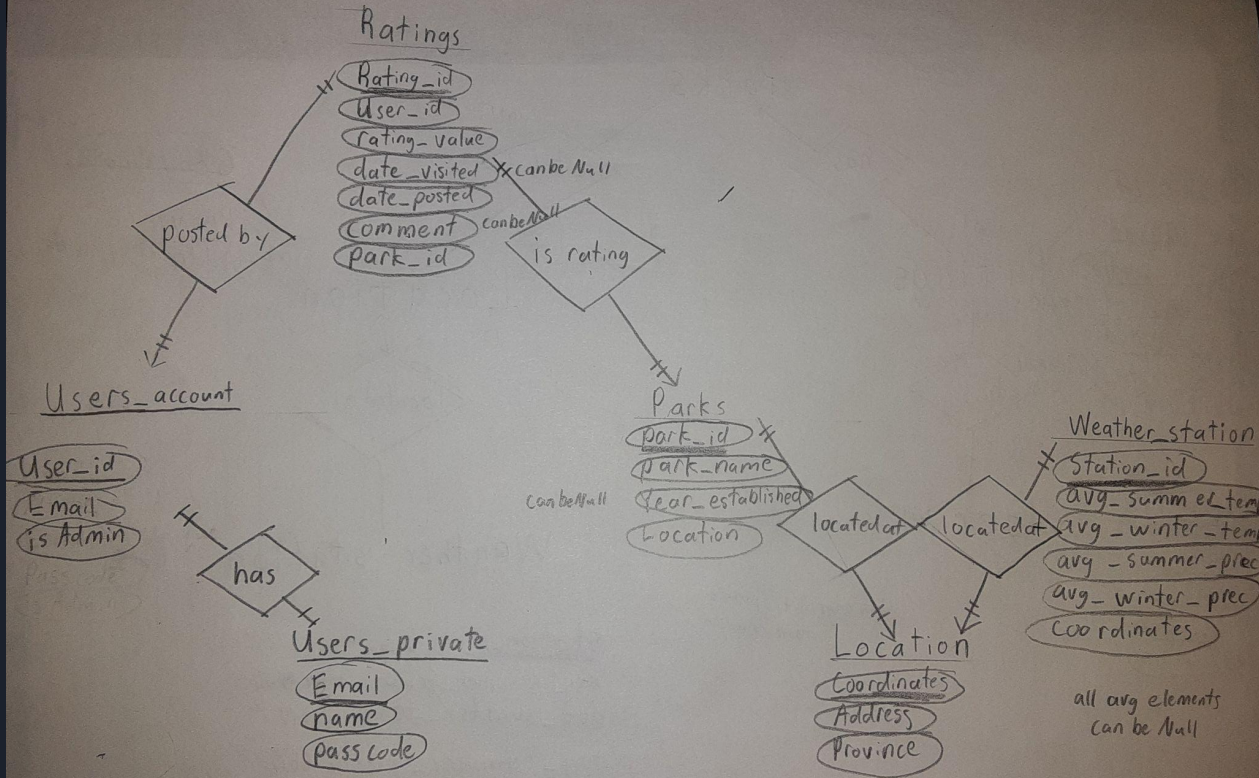 Ratings
Rating_id
User_id
rating_value
date_visited
can be Null
date_posted
comment
can be Null
park_id
posted by
is rating
Users_account
User_id
Email
is Admin
has
Users_private
Email
name
passcode
Parks
park_id
park_name
can be Null
Year_established
Location
located at
located at
Weather_station
Station_id
avg_summer_tem
avg_winter_tem
avg_summer_prec
avg_winter_prec
Coordinates
Location
Coordinates
Address
Province
all avg elements
can be Null